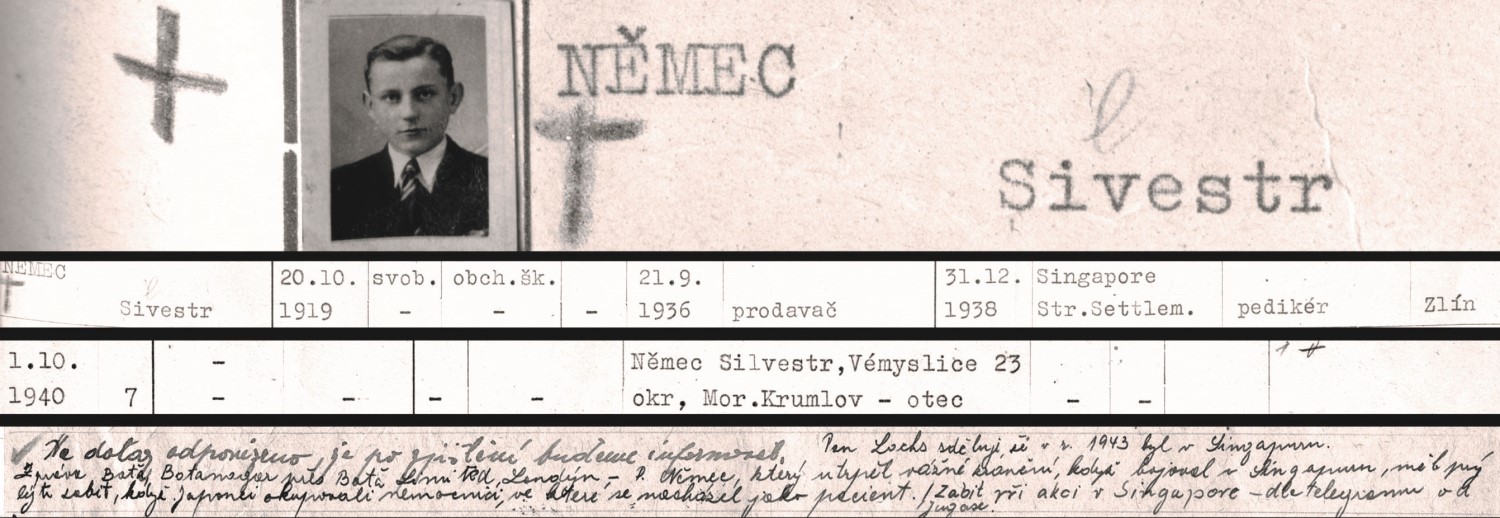 NĚMEC
Sivestr
NĚMEC 20.10. svob. obch.šk. 21.9. 31.12. Singapore
Sivestr 1919 - - - 1936 prodavač 1938 Str.Settlem. pedikér Zlín
1.10. - Němec Silvestr,Vémyslice 23
1940 7 - - - - okr, Mor.Krumlov - otec - -
Na dotaz odpovězeno, je po zjištění budeme informovat. Pan Lachs sděluje, že v r. 1943 byl v Singapuru.
Zpráva Baťa, Batanagar přes Baťa Ltd, Londýn - P. Němec, který utrpěl vážné zranění, když bojoval v Singapuru, měl prý
býti zabit, když japonci okupovali nemocnici, ve které se nacházel jako pacient. /Zabit při akci v Singapore - dle telegramu od